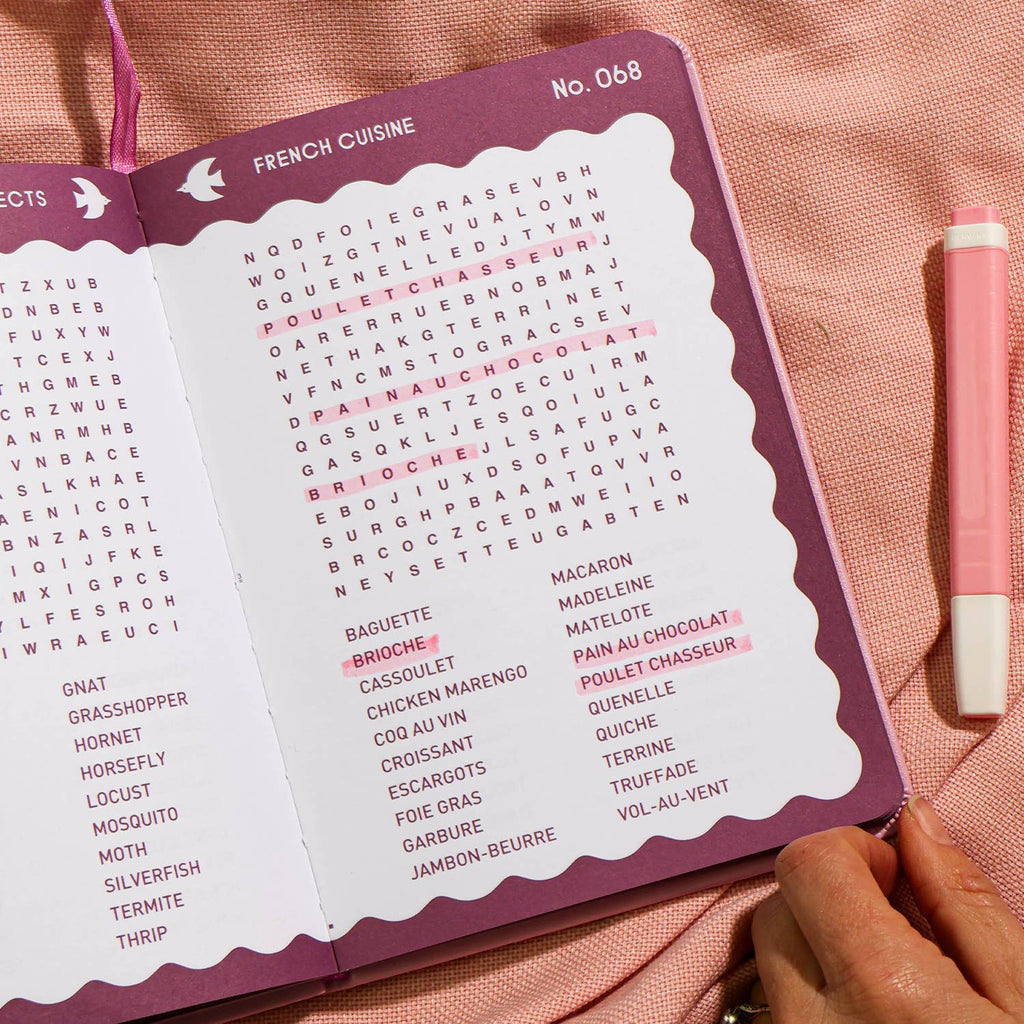 ECTS
T Z X U B
D N B E B
F U X Y W
T C E X J
T H G M E B
C R Z W U E
A N R M H B
V N B A C E
S L K H A E
A E N I C O T
B N Z A S R L
I Q I J F K E
M X I G P C S
L F E S R O H
I W R A E U C I
GNAT
GRASSHOPPER
HORNET
HORSEFLY
LOCUST
MOSQUITO
MOTH
SILVERFISH
TERMITE
THRIP
FRENCH CUISINE
No. 068
N Q D F O I E G R A S E V B H
W O I Z G T N E V U A L O V N
G Q U E N E L L E D J T Y M W
P O U L E T C H A S S E U R J
O A R E R R U E B N O B M A J
N E T H A K G T E R R I N E T
V F N C M S T O G R A C S E V
D P A I N A U C H O C O L A T
Q G S U E R T Z O E C U I R M
G A S Q K L J E S Q O I U L A
B R I O C H E J L S A F U G C
E B O J I U X D S O F U P V A
S U R G H P B A A A T Q V V R
B R C O C Z C E D M W E I I O
N E Y S E T T E U G A B T E N
BAGUETTE
BRIOCHE
CASSOULET
CHICKEN MARENGO
COQ AU VIN
CROISSANT
ESCARGOTS
FOIE GRAS
GARBURE
JAMBON-BEURRE
MACARON
MADELEINE
MATELOTE
PAIN AU CHOCOLAT
POULET CHASSEUR
QUENELLE
QUICHE
TERRINE
TRUFFADE
VOL-AU-VENT